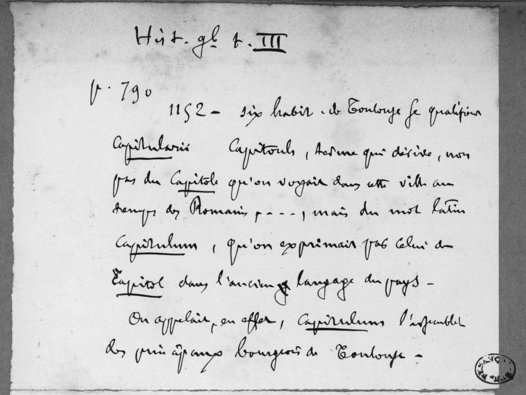 Hist. gle t. III
p. 790
1152 - six habit. de Toulouse se qualifient
Capitularii Capitouls, terme qui dérive, non
pas du Capitole qu'on voyait dans cette ville au
temps des Romains, ...., mais du mot latin
Capitulum, qu'on exprimait par celui de
Capitol dans l'ancien langage du pays -
On appelait, en effet, Capitulum l'assemblée
des principaux bourgeois de Toulouse -